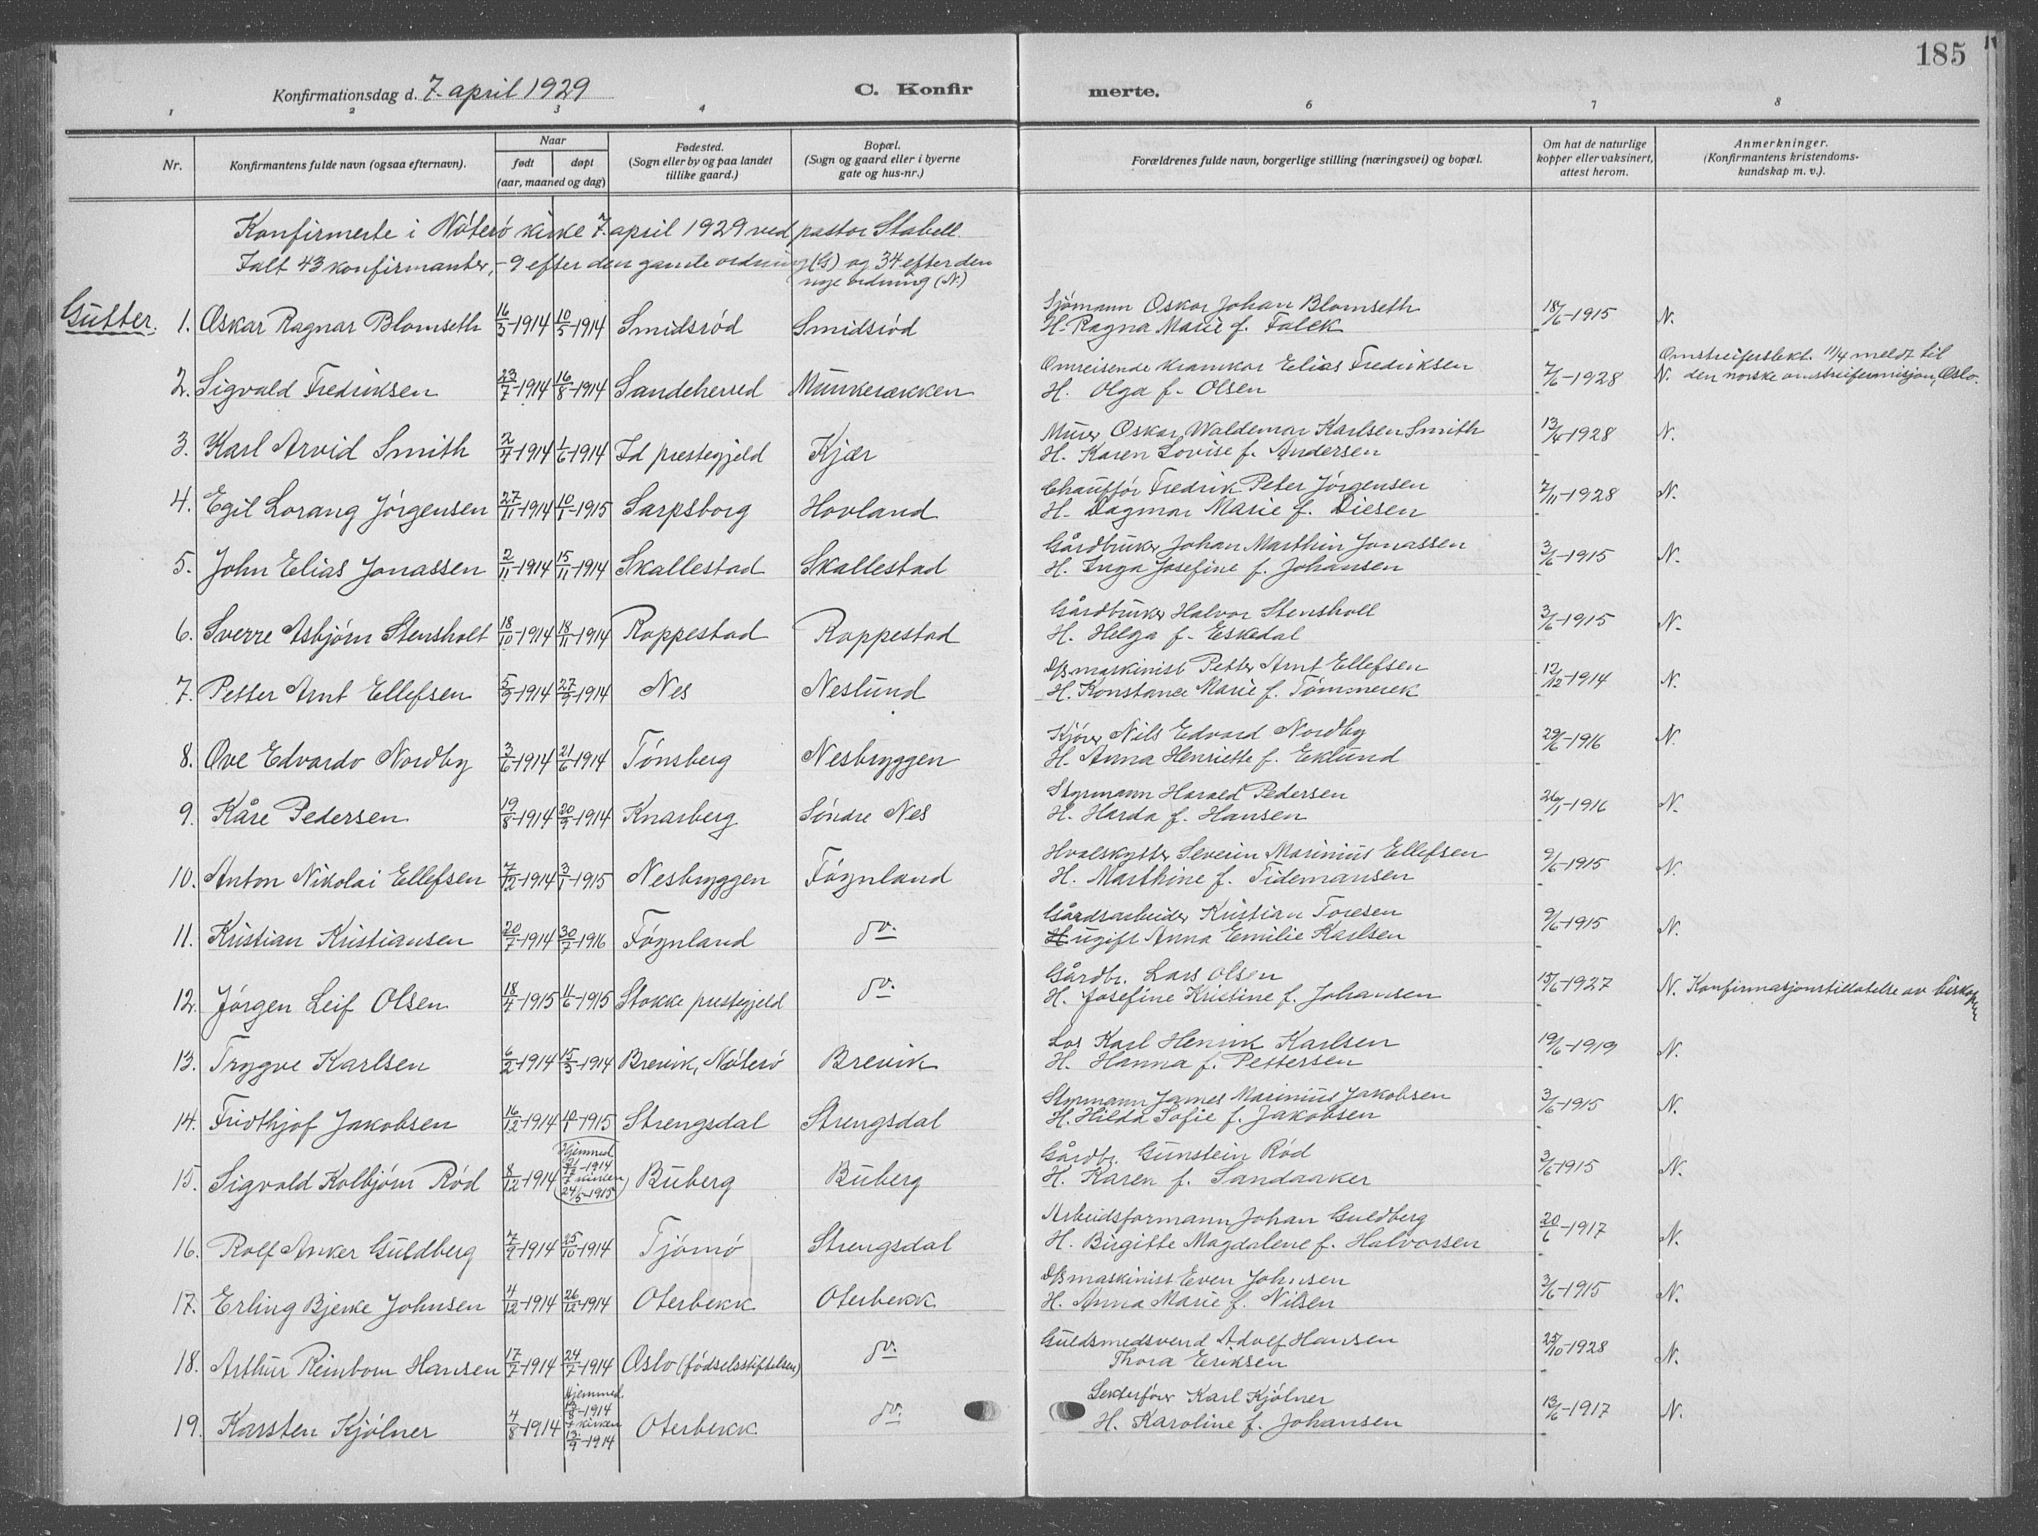 185
Konfirmationsdag d. 7. april 1929 C. Konfirmerte.
1 2 3 4 6 7 8
Nr. Konfirmantens fulde navn (ogsaa efternavn). Naar født døpt (aar, maaned og dag) Fødested. (Sogn eller by og paa landet tillike gaard.) Bopæl. (Sogn og gaard eller i byerne gate og hus-nr.) Forældrenes fulde navn, borgerlige stilling (næringsvei) og bopæl. Om hat de naturlige kopper eller vaksinert, attest herom. Anmerkninger. (Konfirmantens kristendoms-kundskap m. v.).
Konfirmerte i Nøterø kirke 7. april 1929 ved pastor Stabell.
Ialt 43 konfirmanter, - 9 efter den gamle ordning (G) og 34 efter den
nye ordning (N.)
Gutter.
1. Oskar Ragnar Blomseth 16/3-1914 10/5-1914 Smidsrød Smidsrød Sjømann Oskar Johan Blomseth 18/6-1915 N.
H. Ragna Marie f. Falck
2. Sigvald Fredriksen 23/7-1914 16/8-1914 Sandeherred Munkerækken Omreisende kramkar Elias Fredriksen 7/6-1928 N. Omstreiferslekt. 11/4 meldt til
H. Olga f. Olsen den norske omstreifermisjon, Oslo.
3. Karl Arvid Smith 2/4-1914 1/6-1914 Id prestegjeld Kjær Murer Oskar Waldemar Karlsen Smith 13/4-1928 N.
H. Karen Lovise f. Andersen
4. Egil Lorang Jørgensen 27/11-1914 10/1-1915 Sarpsborg Hovland Chauffør Fredrik Peter Jørgensen 7/11-1928 N.
H. Dagmar Marie f. Diesen
5. John Elias Jonassen 2/11-1914 15/11-1914 Skallestad Skallestad Gårdbruker Johan Marthin Jonassen 3/6-1915 N.
H. Inga Josefine f. Johansen
6. Sverre Asbjørn Stensholt 18/10-1914 18/11-1914 Roppestad Roppestad Gårdbruker Halvor Stensholt 3/6-1915 N.
H. Helga f. Eskedal
7. Petter Arnt Ellefsen 5/9-1914 27/9-1914 Nes Neslund D/S maskinist Petter Arnt Ellefsen 12/12-1914 N.
H. Konstance Marie f. Tømmerek
8. Ove Edvardo Nordby 3/6-1914 21/6-1914 Tønsberg Nesbryggen Kjører Nils Edvard Nordby 29/6-1916 N.
H. Anna Henriette f. Eklund
9. Kåre Pedersen 19/8-1914 20/9-1914 Knarberg Søndre Nes Styrmann Harald Pedersen 26/1-1916 N.
H. Harda f. Hansen
10. Anton Nikolai Ellefsen 7/12-1914 3/1-1915 Nesbryggen Føynland Hvalskytter Severin Marinius Ellefsen 9/6-1915 N.
H. Marthine f. Tidemansen
11. Kristian Kristiansen 20/7-1914 30/7-1916 Føynland do. Gårdsarbeider Kristian Toresen 9/6-1915 N.
ugift Anna Emilie Karlsen
12. Jørgen Leif Olsen 18/4-1915 11/6-1915 Stokke prestegjeld do. Gårdbr. Lars Olsen 15/6-1927 N. Konfirmasjonstillatelse av biskopen
H. Josefine Kristine f. Johansen
13. Trygve Karlsen 6/2-1914 15/3-1914 Brevik, Nøterø Brevik Los Karl Henrik Karlsen 19/6-1919 N.
H. Hanna f. Pettersen
14. Fridthjof Jakobsen 16/12-1914 10/1-1915 Strengsdal Strengsdal Styrmann James Marinius Jakobsen 3/6-1915 N.
H. Hilda Sofie f. Jakobsen
15. Sigvald Kolbjørn Rød 8/12-1914 (Hjemmed. 21/12-1914 i kirken 24/5-1915) Buberg Buberg Gårdbr. Gunstein Rød 3/6-1915 N.
H. Karen f. Sandaaker
16. Rolf Anker Guldberg 7/9-1914 25/10-1914 Tjømø Strengsdal Arbeidsformann Johan Guldberg 20/6-1917 N.
H. Birgitte Magdalene f. Halvorsen
17. Erling Bjerke Johnsen 4/12-1914 26/12-1914 Oterbekk Oterbekk D/S maskinist Even Johnsen 3/6-1915 N.
H. Anna Marie f. Nilsen
18. Arthur Reinbom Hansen 17/7-1914 24/7-1914 Oslo (fødselsstiftelsen) do. Guldsmedsvend Adolf Hansen 25/10-1928 N.
Thora Eriksen
19. Karsten Kjølner 4/8-1914 Hjemmed. /8-1914 i kirken 13/9-1914 Oterbekk do. Karl Kjølner 13/6-1917 N.
H. Karoline f. Johansen